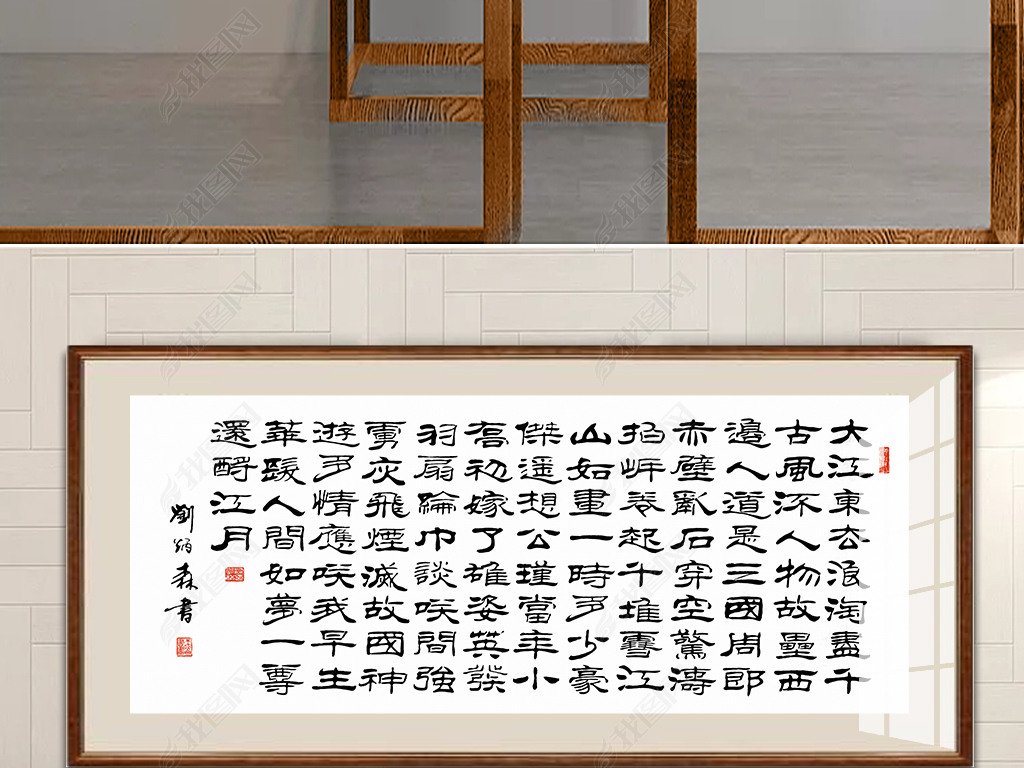 大江東去浪淘盡千
古風流人物故壘西
邊人道是三國周郎
赤壁亂石穿空驚濤
拍岸卷起千堆雪江
山如畫一時多少豪
傑遥想公瑾當年小
喬初嫁了雄姿英發
羽扇綸巾談咲間強
虜灰飛煙滅故國神
遊多情應咲我早生
華髮人間如夢一尊
還酹江月
劉炳森書